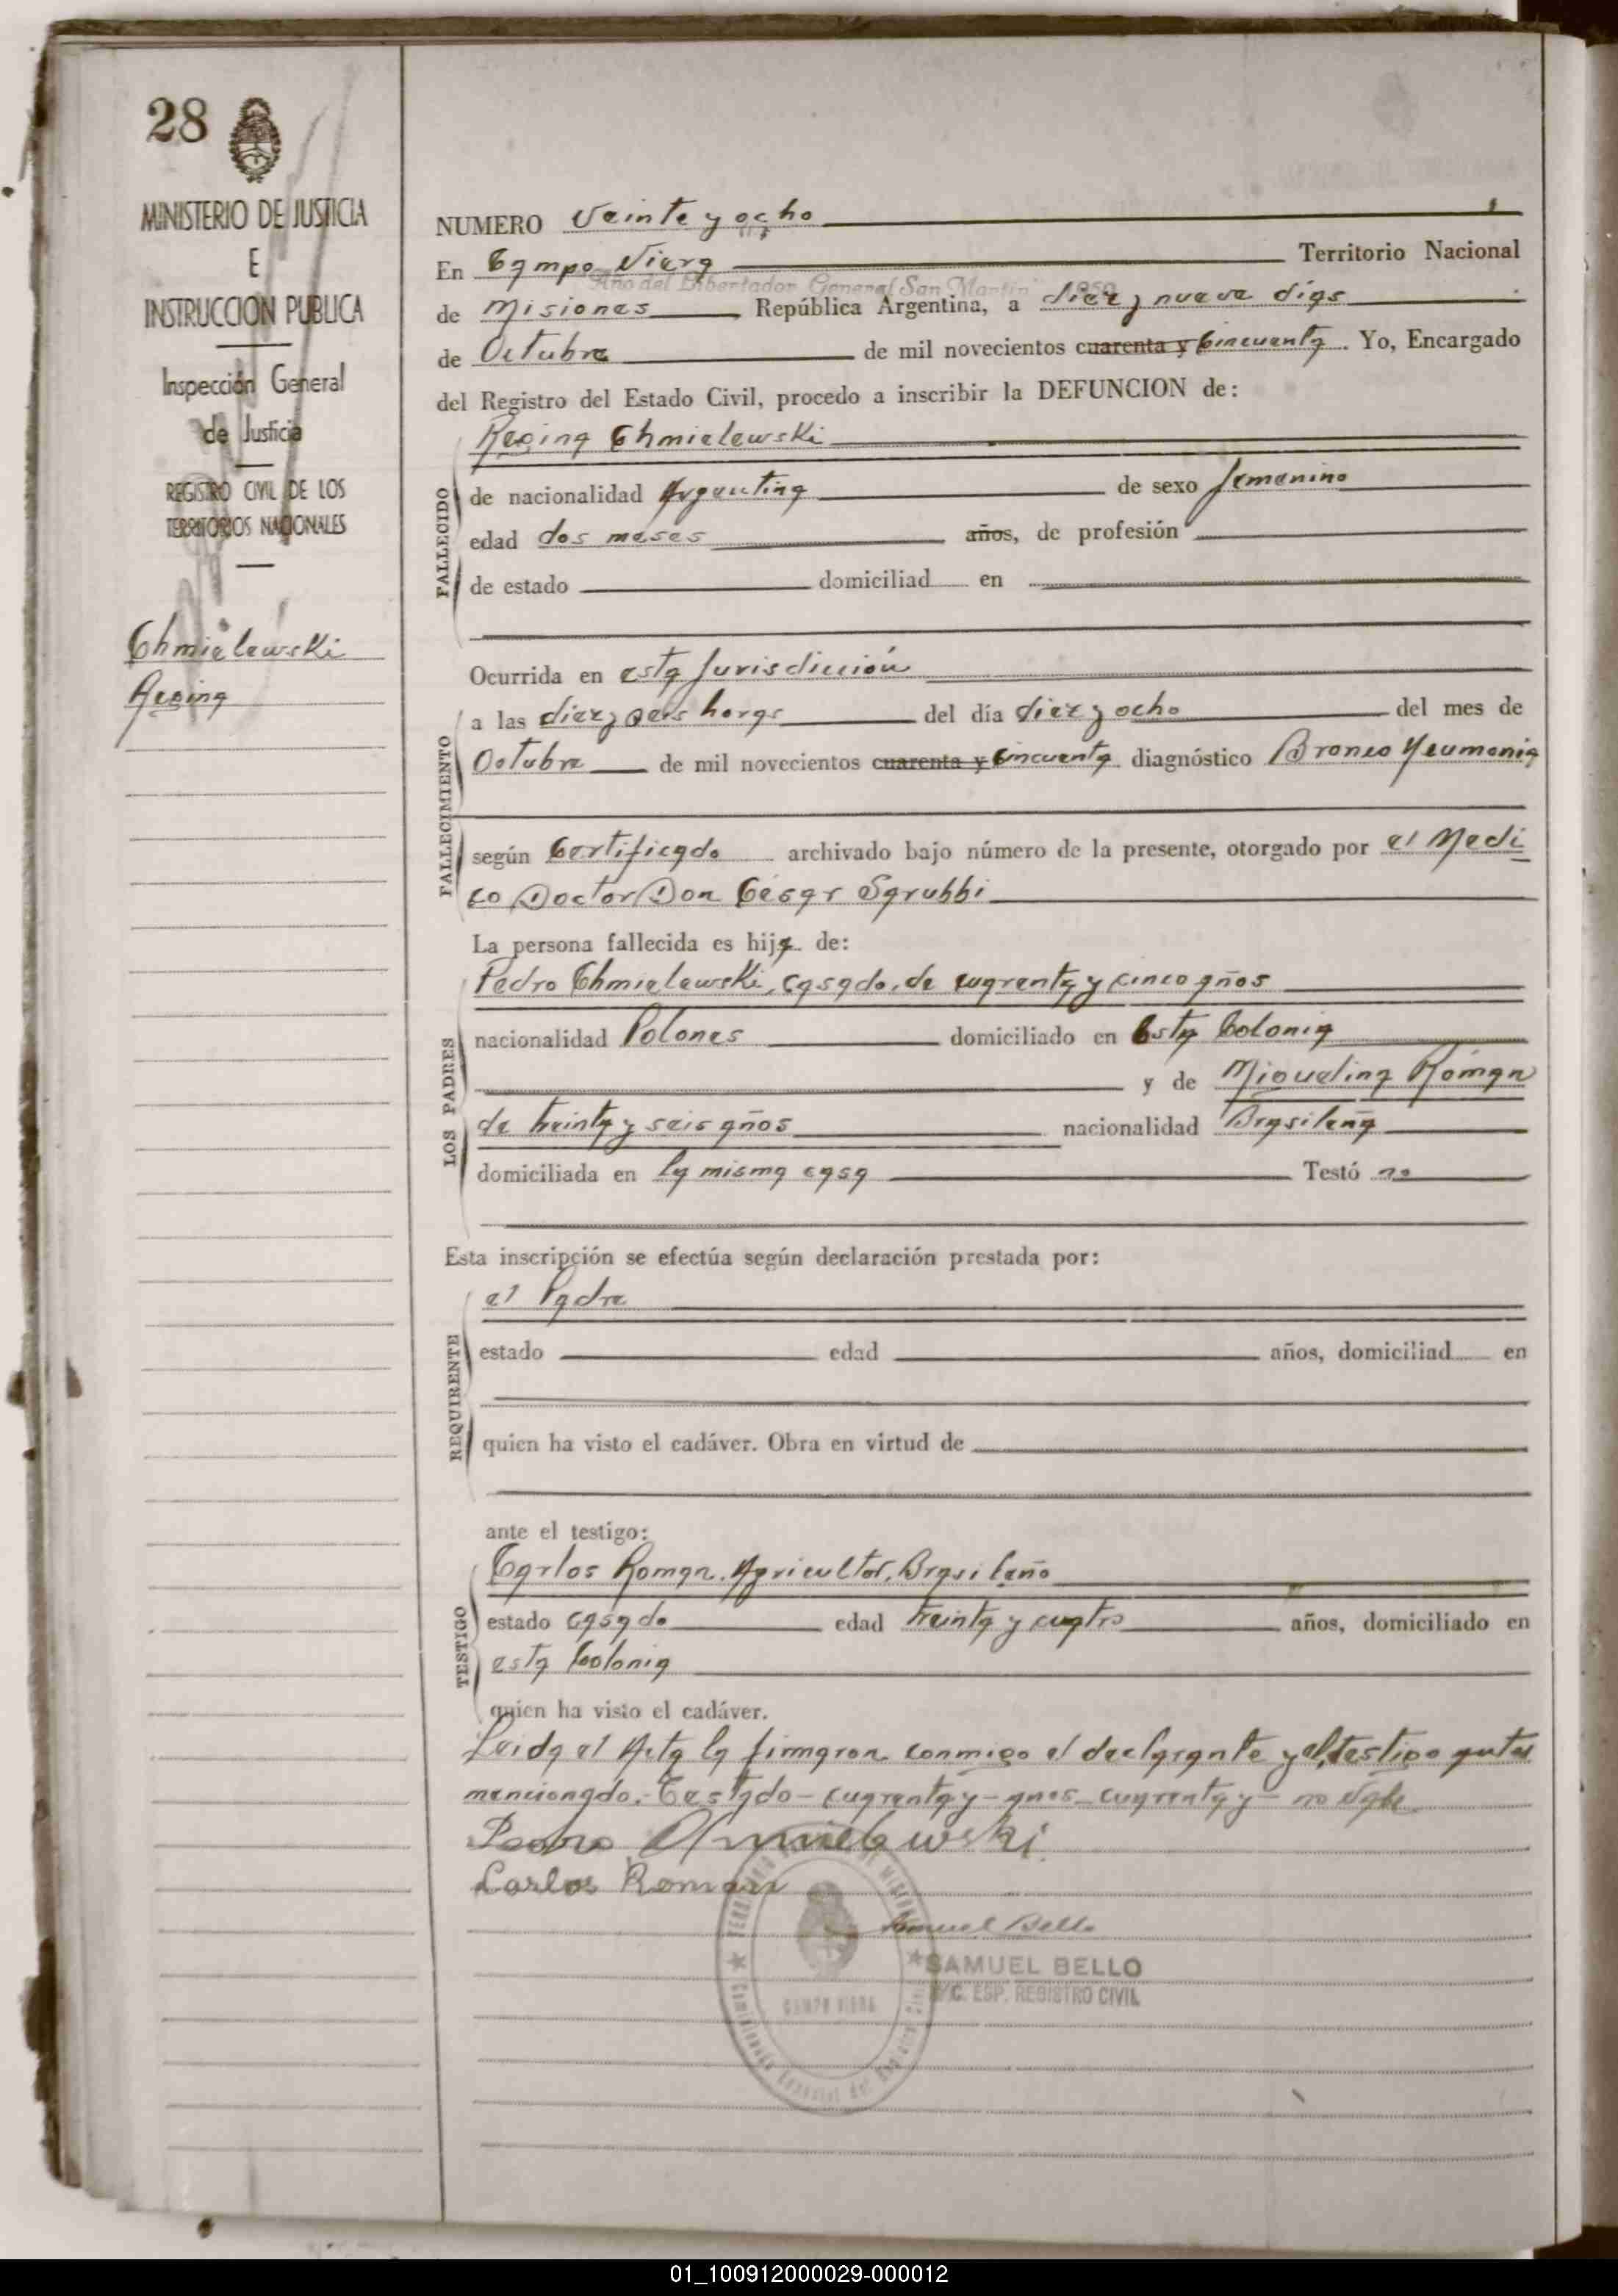 28
MINISTERIO DE JUSTICIA
E
INSTRUCCION PUBLICA
Inspección General
de Justicia
REGISTRO CIVIL DE LOS
TERRITORIOS NACIONALES
Chmielewski
Regina
NUMERO Veinte y ocho
En Campo Viera Territorio Nacional
Año del Libertador General San Martín 1950
de Misiones República Argentina, a diez y nueve días
de Octubre de mil novecientos cuarenta y Cincuenta. Yo, Encargado
del Registro del Estado Civil, procedo a inscribir la DEFUNCION de:
FALLECIDO
Regina Chmielewski
de nacionalidad Argentina de sexo femenino
edad dos meses años, de profesión
de estado domiciliad en
Ocurrida en esta Jurisdicción
FALLECIMIENTO
a las diez y seis horas del día diez y ocho del mes de
Octubre de mil novecientos cuarenta y Cincuenta diagnóstico Bronco Neumonia
según Certificado archivado bajo número de la presente, otorgado por el Medi
co Doctor Don César Sgrubbi
La persona fallecida es hija de:
LOS PADRES
Pedro Chmielewski, casado, de cuarenta y cinco años
nacionalidad Polones domiciliado en Esta Colonia
y de Miguelina Róman
de treinta y seis años nacionalidad Brasileña
domiciliada en la misma casa Testó no
Esta inscripción se efectúa según declaración prestada por:
REQUIRENTE
el Padre
estado edad años, domiciliad en
quien ha visto el cadáver. Obra en virtud de
ante el testigo:
TESTIGO
Carlos Roman, Agricultor, Brasileño
estado casado edad treinta y cuatro años, domiciliado en
esta Colonia
quien ha visto el cadáver.
Leida el Acta la firmaron conmigo el declarante y el testigo antes
mencionado.- Testado - cuarenta y - años - cuarenta y - no Vale
Pedro Chmielewski
Carlos Roman
Samuel Bello
SAMUEL BELLO
E/C. ESP. REGISTRO CIVIL
CAMPO VIERA
01_100912000029-000012